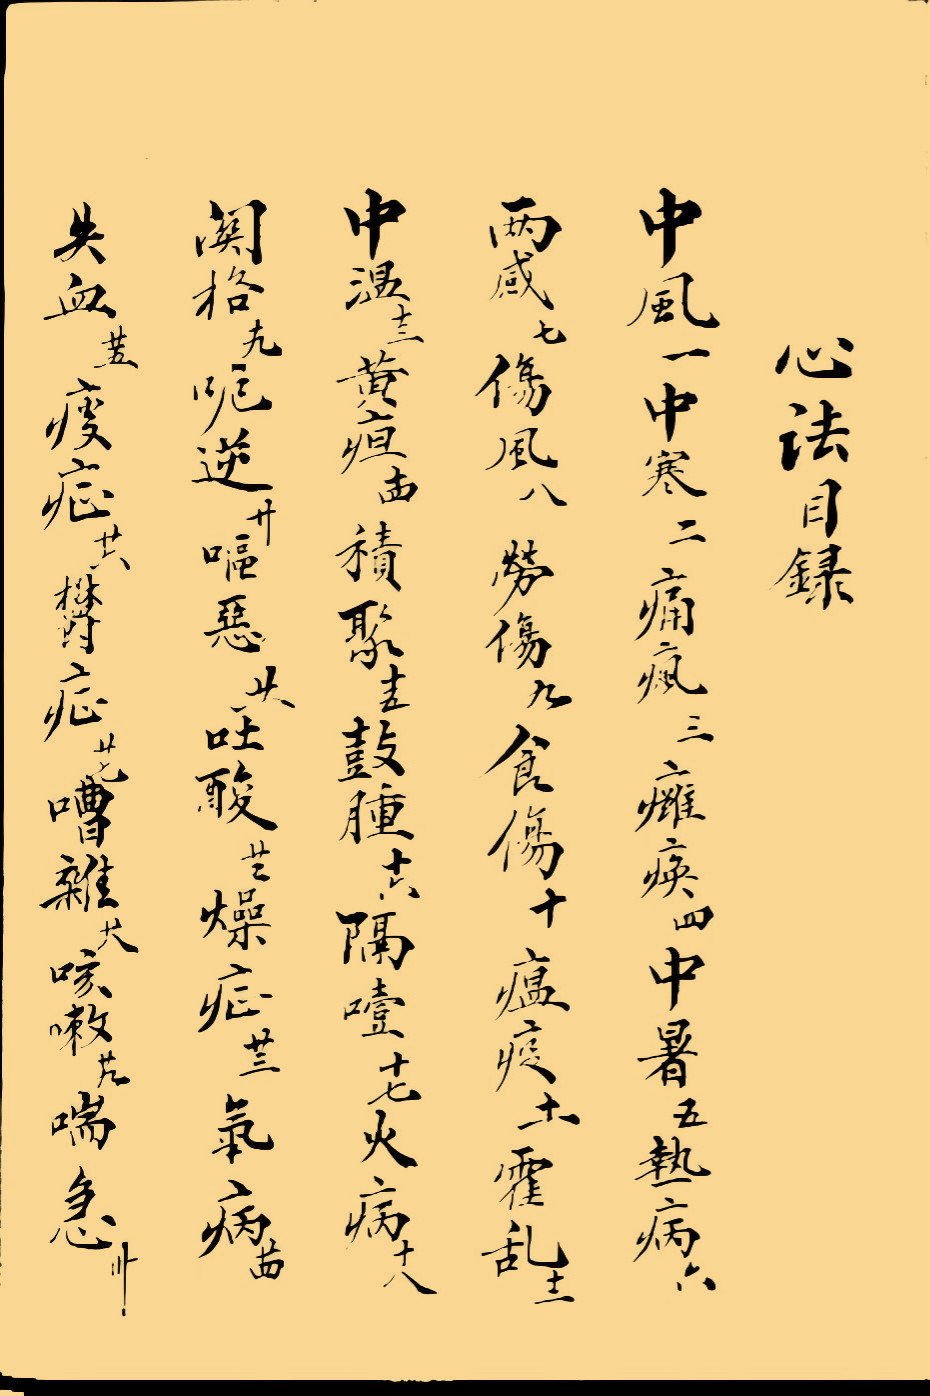 心法目録
中風一中寒二痛瘋三癱瘓四中暑五熱病六
兩感七傷風八勞傷九食傷十瘟疫十一霍乱十二
中濕十三黄疸十四積聚十五鼓腫十六隔噎十七火病十八
関格十九呃逆廿嘔惡廿一吐酸廿二燥症廿三氣病廿四
失血廿五痿症廿六欝症廿七嘈雜廿八咳嗽廿九喘急卅